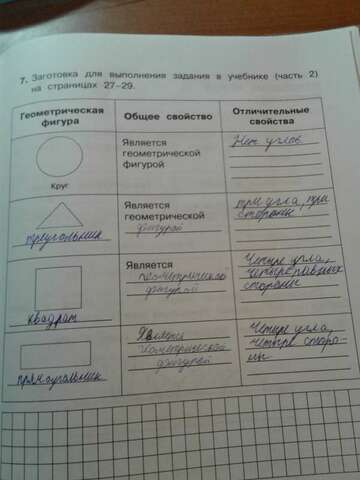 7. Заготовка для выполнения задания в учебнике (часть 2)
на страницах 27–29.
Геометрическая
фигура
Общее свойство
Отличительные
свойства
Круг
Является
геометрической
фигурой
Нет углов
треугольник
Является
геометрической
фигурой
три угла, три
стороны
квадрат
Является
геометрической
фигурой
Четыре угла,
четыре равных
стороны
прямоугольник
Является
геометрической
фигурой
Четыре угла,
четыре сторо-
ны